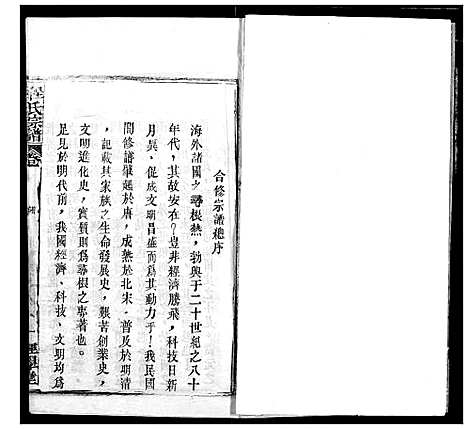 合修宗譜總序
海外諸國之尋根熱，勃興于二十世紀之八十
年代，其故安在？豈非經濟騰飛，科技日新
月異、促成文明昌盛而爲其動力乎！我民國
間修譜肇起於唐，成熟於北宋，普及於明清
，記載其家族之生命發展史，艱苦創業史，
文明進化史，實質則爲尋根之專著也。
足見於明代前，我國經濟、科技、文明均爲
氏宗譜